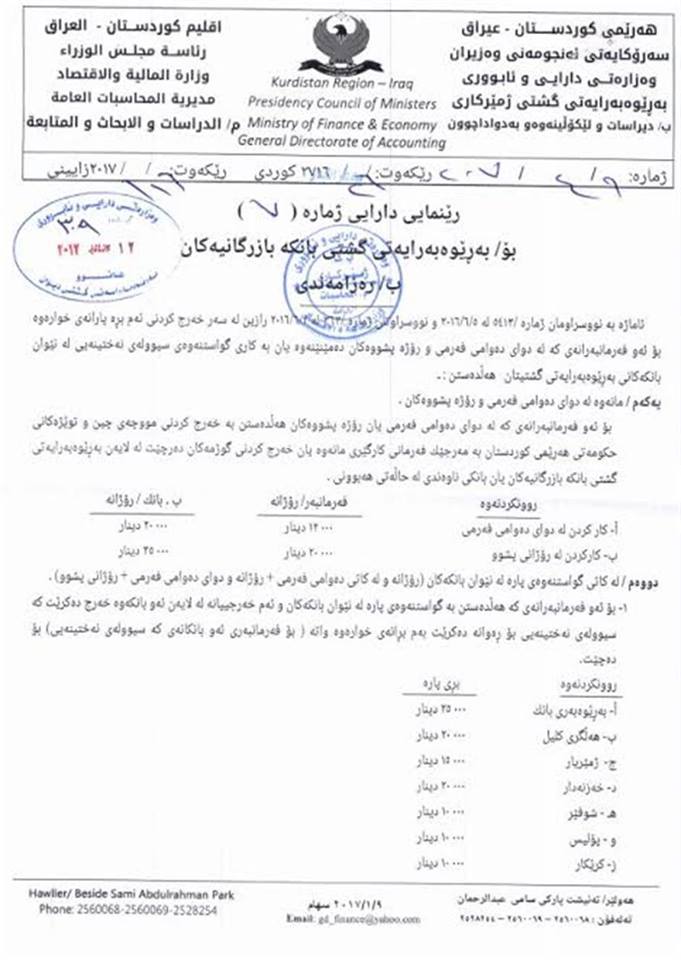 هەرێمی کوردستان - عیراق
سەرۆکایەتی ئەنجومەنی وەزیران
وەزارەتی دارایی و ئابووری
بەڕێوەبەرایەتی گشتی ژمێرکاری
ب/ دیراسات و لێکۆڵینەوەو بەدواداچوون
Kurdistan Region – Iraq
Presidency Council of Ministers
Ministry of Finance & Economy
General Directorate of Accounting
اقليم كوردستان - العراق
رئاسة مجلس الوزراء
وزارة المالية والاقتصاد
مديرية المحاسبات العامة
م/ الدراسات و الابحاث و المتابعة
ژمارە: ڕێکەوت: ٢٧١٦ کوردی ڕێکەوت: / / ٢٠١٧ زایینی
ڕێنمایی دارایی ژمارە ( ٧ )
بۆ/ بەڕێوەبەرایەتی گشتی بانکە بازرگانیەکان
ب/ رەزامەندی
ئاماژە بە نووسراومان ژمارە /٥٤١٣ لە ٢٠١٦/٦/٥ و نووسراومان ژمارە رازین لە سەر خەرج کردنی ئەم بڕە پارانەی خوارەوە
بۆ ئەو فەرمانبەرانەی کە لە دوای دەوامی فەرمی و رۆژە پشووەکان دەمێننەوە یان بە کاری گواستنەوەی سیوولەی نەختینەیی لە نێوان
بانکەکانی بەڕێوەبەرایەتی گشتیتان هەڵدەستن :ـ
یەکەم / مانەوە لە دوای دەوامی فەرمی و رۆژە پشووەکان .
بۆ ئەو فەرمانبەرانەی کە لە دوای دەوامی فەرمی یان رۆژە پشووەکان هەڵدەستن بە خەرج کردنی مووچەی چین و توێژەکانی
حکومەتی هەرێمی کوردستان بە مەرجێك فەرمانی کارگێری مانەوە یان خەرج کردنی گوژمەکان دەرچێت لە لایەن بەڕێوەبەرایەتی
گشتی بانکە بازرگانیەکان یان بانکی ناوەندی لە حاڵەتی هەبوونی .
روونکردنەوە فەرمانبەر/ رۆژانە ب . بانك / رۆژانە
أ- کارکردن لە دوای دەوامی فەرمی ١٢٠٠٠ دینار ٢٠٠٠٠ دینار
ب- کارکردن لە رۆژانی پشوو ٢٠٠٠٠ دینار ٢٥٠٠٠ دینار
دووەم / لە کاتی گواستنەوەی پارە لە نێوان بانکەکان (رۆژانە و لە کاتی دەوامی فەرمی + رۆژانە و دوای دەوامی فەرمی + رۆژانی پشوو) .
١- بۆ ئەو فەرمانبەرانەی کە هەڵدەستن بە گواستنەوەی پارە لە نێوان بانکەکان و ئەم خەرجییانە لە لایەن ئەو بانکەوە خەرج دەکرێت کە
سیوولەی نەختینەیی بۆ رەوانە دەکرێت بەم بڕانەی خوارەوە واتە ( بۆ فەرمانبەری ئەو بانکانەی کە سیوولەی نەختینەیی) بۆ
دەچێت.
روونکردنەوە بڕی پارە
أ- بەڕێوەبەری بانك ٢٥٠٠٠ دینار
ب- هەڵگری کلیل ٢٠٠٠٠ دینار
ج- ژمێریار ١٥٠٠٠ دینار
د- خەزنەدار ٢٠٠٠٠ دینار
هـ- شوفێر ١٠٠٠٠ دینار
و- پۆلیس ١٠٠٠٠ دینار
ز- کرێکار ١٠٠٠٠ دینار
هەولێر/ تەنیشت پارکی سامی عبدالرحمان
تەلەفۆن : ٢٥٦٠٠٦٨ - ٢٥٦٠٠٦٩ - ٢٥٢٨٢٥٤
٢٠١٧/١/٩ سهام
Email: gd_finance@yahoo.com
Hawlier/ Beside Sami Abdulrahman Park
Phone: 2560068-2560069-2528254